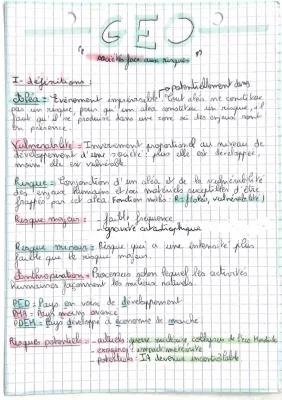 GEO
"Sociétés face aux risques"
I- définitions :
potentiellement dang
Aléa = Evènement imprévisible. Tout aléa ne constitue
pas un risque, pour qu'un aléa constitue un risque, il
faut qu'il se produise dans une zone où des enjeux sont
en présence.
Vulnérabilité = Inversement proportionnel au niveau de
développement d'une société : plus elle est développée,
moins elle est vulnérable
Risque = Conjonction d'un aléa et de la vulnérabilité
des enjeux humains et/ou matériels susceptibles d'être
frappés par cet aléa. Fonction maths : R = f(aléa, vulnérabilité)
Risque majeur = - faible fréquence
- gravité catastrophique
Risque mineur = Risque qui a une intensité plus
faible que le risque majeur.
Anthropisation = Processus selon lequel les activités
humaines façonnent les milieux naturels.
PED = Pays en voie de développement
PMA = Pays moins avancé
PDEM = Pays développé à économie de marché
Risques potentiels = - actuels : guerre nucléaire,
- exogène : impact météorite
- potentiels : IA devenue incontrôlable